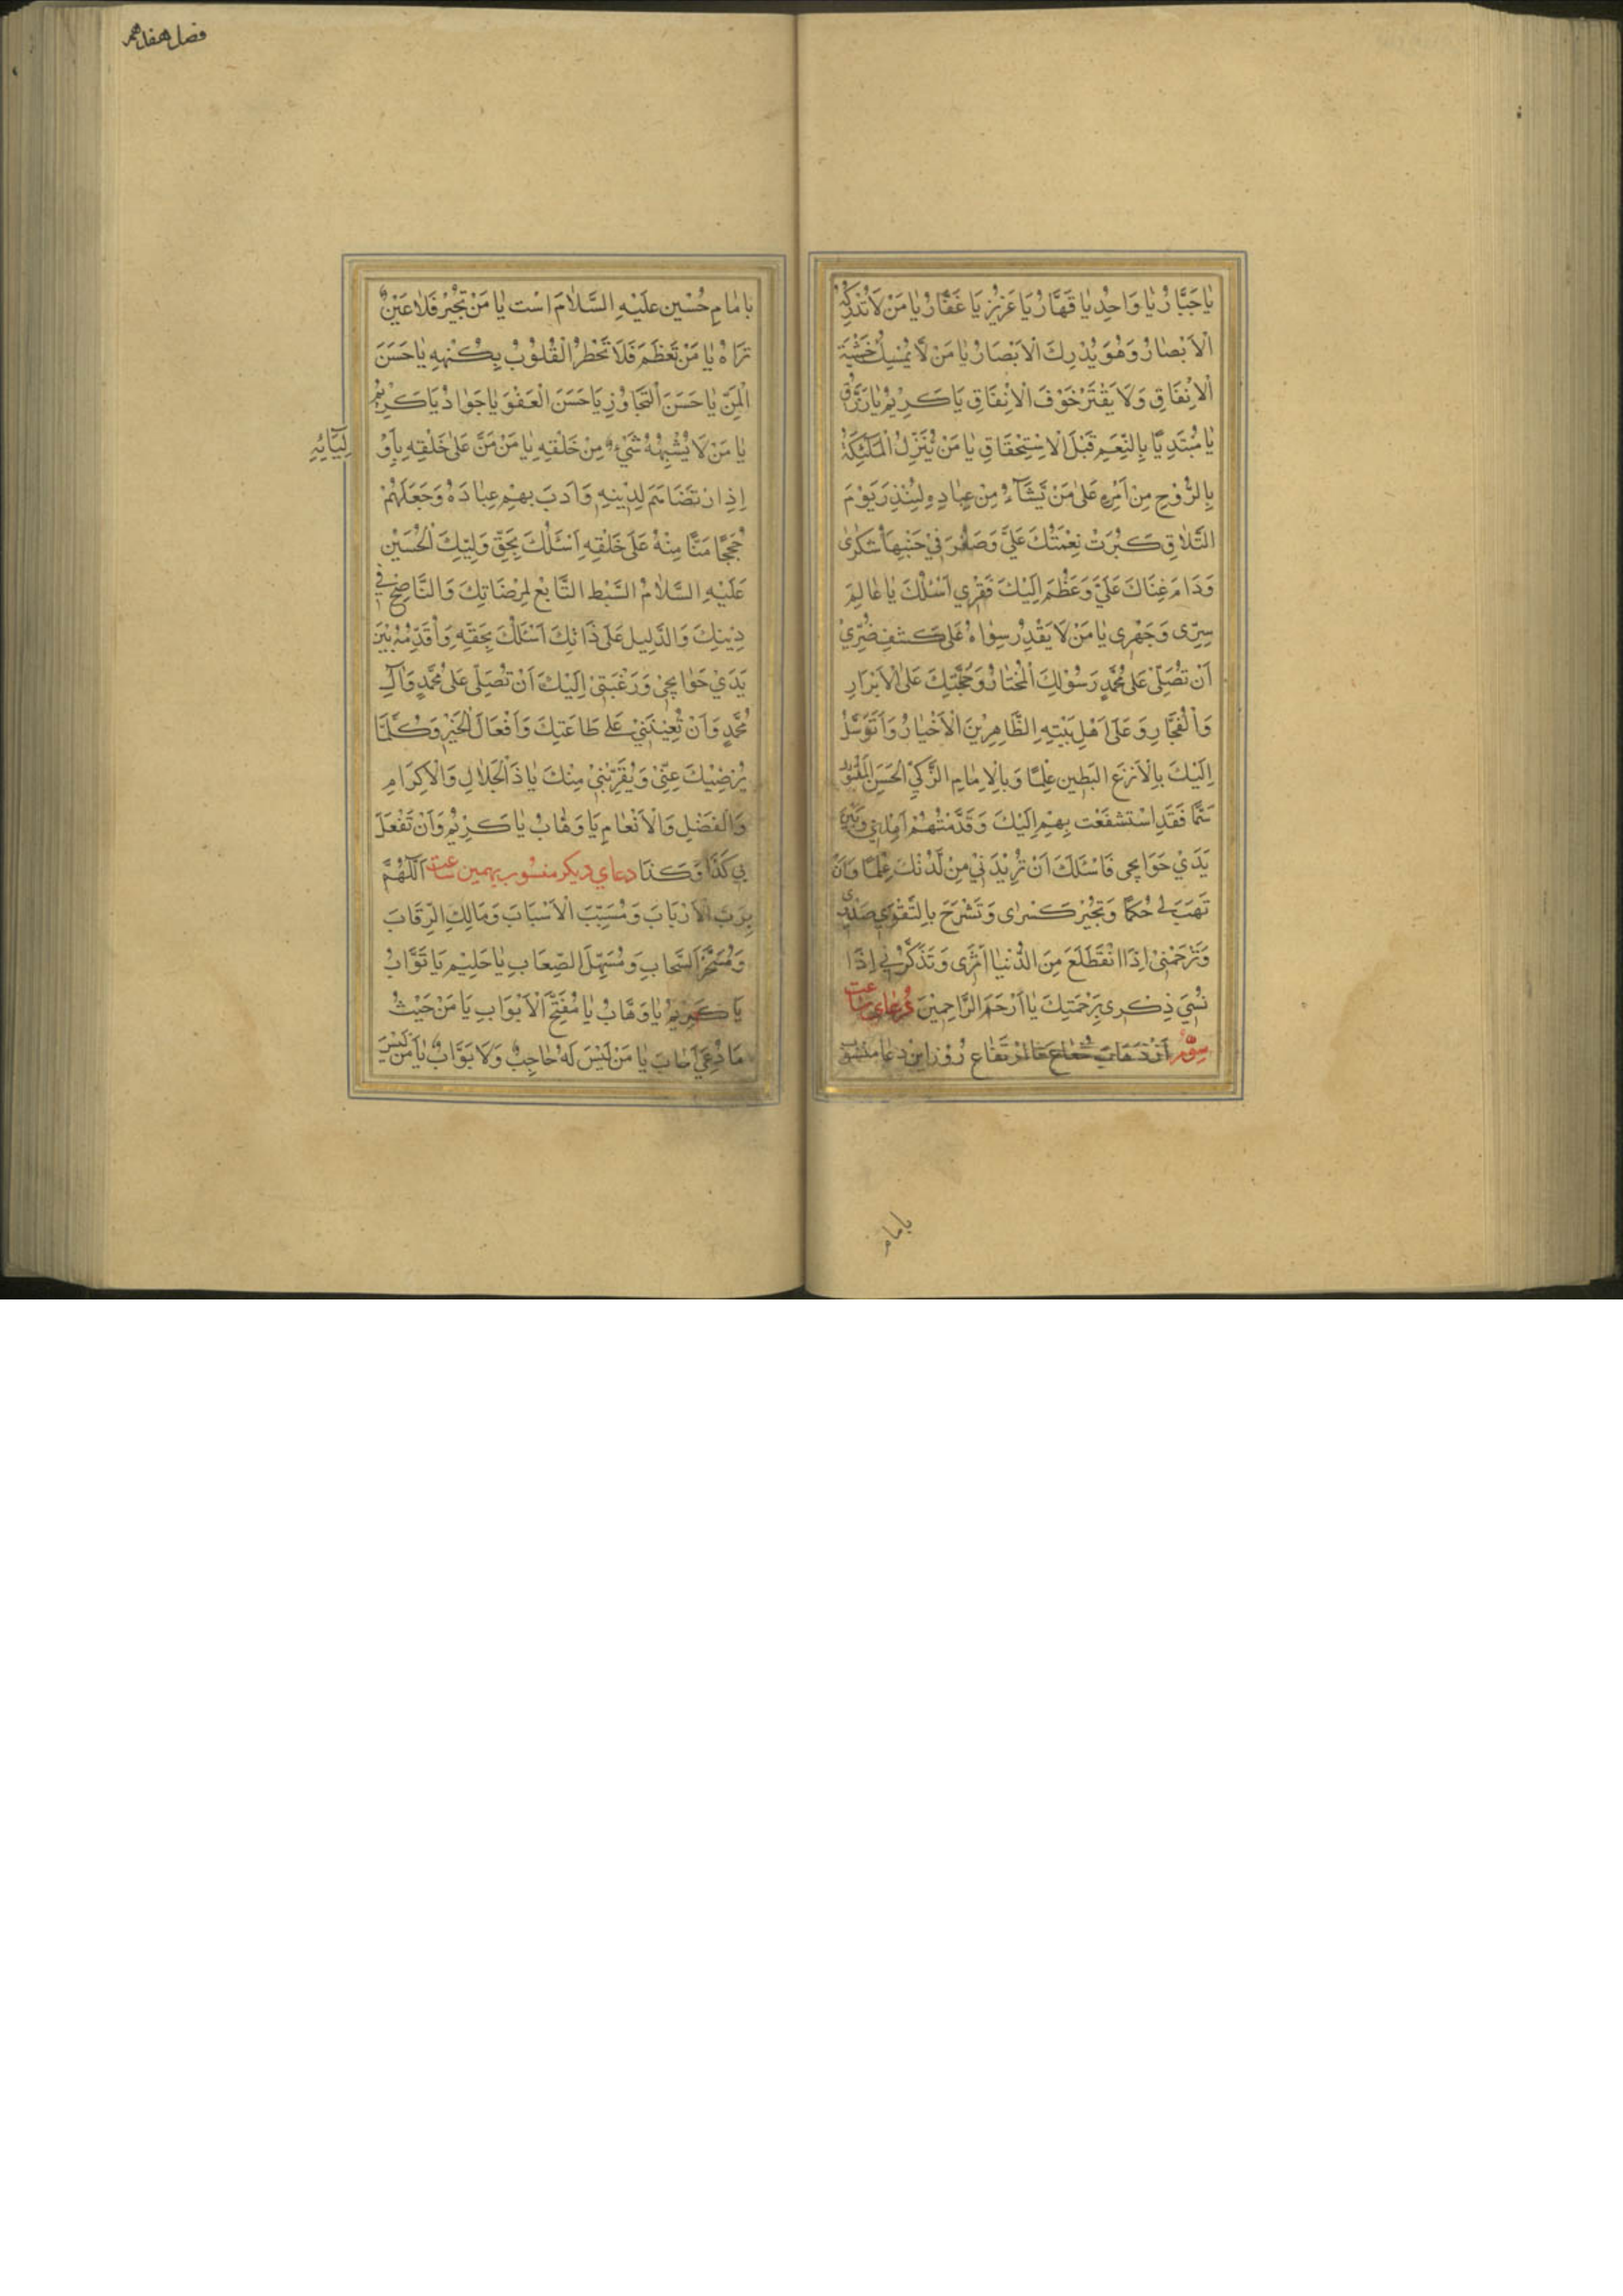 يا جَبَّارُ يا وَاحِدُ يا قَهَّارُ يَا عَزيزُ يَا غَفَّارُ يا مَنْ لَا تُدْرِكُهُ
الْاَبْصَارُ وَهُوَ يُدْرِكَ الْاَبْصَارُ يا مَنْ لَا يُمْسِكُ خَشْيَةَ
الْاِنْفَاقِ وَلَا يَقْتَرُ خَوْفَ الْاِنْفَاقِ يَا كَرِيْمُ يا رَزَّاقُ
يا مُبْتَدِيًا بِالنِّعَمِ قَبْلَ الْاِسْتِحْقَاقِ يا مَنْ يُنَزِّلُ الْمَلٰئِكَةُ
بِالرُّوْحِ مِنْ اَمْرِهِ عَلىٰ مَنْ يَّشَآءُ مِنْ عِبادِهِ لِيُنْذِرَ يَوْمَ
التَّلاقِ كَبُرَتْ نِعْمَتُكَ عَلَيَّ وَصَغُرَ فِي جَنْبِهَا شُكْرى
وَدَامَ غِنَاكَ عَلَيَّ وَعَظُمَ اِلَيْكَ فَقْرِي اَسْئَلُكَ يا عَالِمَ
سِرِّى وَجَهْرِى يا مَنْ لَا يَقْدِرُ سِوَاهُ عَلىٰ كَشْفِ ضُرِّيْ
اَنْ تُصَلِّىَ عَلىٰ مُحَمَّدٍ رَسُوْلِكَ الْمُخْتَارُ وَحُجَّتِكَ عَلَى الْاَبْرَارِ
وَالْفُجَّارِ وَعَلىٰ اَهْلِ بَيْتِهِ الطَّاهِرِيْنَ الْاَخْيَارُ وَاَتَوَسَّلُ
اِلَيْكَ بِالْاَنْزَعِ البَطِينِ عِلْمًا وَبِالْاِمَامِ الزَّكِيِّ الْحَسَنِ الْمَقْتُوْلِ
سَمًّا فَقَدِ اسْتَشْفَعْتُ بِهِمْ اِلَيْكَ وَقَدَّمْتُهُمْ اَمَامِى وَبَيْنَ
يَدَيْ حَوَايِجِى فَاسْئَلُكَ اَنْ تَزِيْدَنِيْ مِنْ لَّدُنْكَ عِلْمًا وَاَنْ
تَهَبَ لِى حُكْمًا وَتَجْبُرَ كَسْرِى وَتَشْرَحَ بِالتَّقْوَى صَدْرِى
وَتَرْحَمْنِىْ اِذَا انْقَطَلَعَ مِنَ الدُّنْيَا اَثَرِى وَتَذْكُرْنِى اِذَا
نُسِيَ ذِكْرِى بِرَحْمَتِكَ يَا اَرْحَمَ الرَّاحِمِيْنَ دُعَاى ساعت
سِوُّم اَزْ ذَهَابَ شُعَاع تا اِرْتِفَاع رُوْز اِيْن دعا مَنْسُوب
بامام
فصل هفدهم
بامامِ حُسَيْن عَلَيْهِ السَّلَامَ اسْت يا مَنْ تَجَبَّرَ فَلا عَيْنٌ
تَرَاهُ يا مَنْ تَعَظَّمَ فَلَا تَخْطُرُ الْقُلُوْبُ بِكُنْهِهِ يا حَسَنَ
الْمَنِّ يا حَسَنَ التَّجَاوُزِ يَا حَسَنَ الْعَفْوِ يا جَوَادُ يَا كَرِيْمُ
يا مَنْ لَا يُشْبِهُهُ شَيْءٌ مِنْ خَلْقِهِ يا مَنْ مَنَّ عَلىٰ خَلْقِهِ بِاَوْ
لِيَآئِهِ
اِذِ ارْتَضَاهُمْ لِدِيْنِهِ وَاَدَّبَ بِهِمْ عِبَادَهُ وَجَعَلَهُمْ
حُجَجًا مَنًّا مِنْهُ عَلىٰ خَلْقِهِ اَسْئَلُكَ بِحَقِّ وَلِيِّكَ الْحُسَيْنِ
عَلَيْهِ السَّلامُ السَّبْطِ التَّابِعِ لِمَرْضَاتِكَ وَالنَّاصِحِ فِى
دِيْنِكَ وَالدَّلِيلِ عَلىٰ ذَاتِكَ اَسْئَلُكَ بِحَقِّهِ وَاُقَدِّمُهُ بَيْنَ
يَدَيْ حَوَايِجِىْ وَرَغْبَتِىْ اِلَيْكَ اَنْ تُصَلِّىَ عَلىٰ مُحَمَّدٍ وَآلِ
مُحَمَّدٍ وَاَنْ تُعِيْنَنِيْ عَلىٰ طَاعَتِكَ وَاَفْعَالِ الْخَيْرِ وَكُلِّمَا
يُرْضِيْكَ عَنِّىْ وَيُقَرِّبُنِىْ مِنْكَ يا ذَا الْجَلالِ وَالْاِكْرَامِ
وَالْفَضْلِ وَالْاَنْعَامِ يَا وَهَّابُ يا كَرِيْمُ وَاَنْ تَفْعَلَ
بِى كَذَا وَكَذَا دعاي ديكر منسُوب بهمين ساعت اَللّٰهُمَّ
رَبَّ الْاَرْبَابَ وَمُسَبِّبَ الْاَسْبَابَ وَمَالِكَ الرِّقَابَ
وَمُسَخِّرَ السَّحَابِ وَمُسَهِّلَ الصِّعَابِ يا حَلِيْمُ يَا تَوَّابُ
يَا كَرِيْمُ يا وَهَّابُ يا مُفَتِّحَ الْاَبْوَابِ يَا مَنْ حَيْثُ
مَا دُعِيَ اَجَابَ يا مَنْ لَيْسَ لَهُ حَاجِبٌ وَلَا بَوَّابٌ يَا مَنْ لَيْسَ